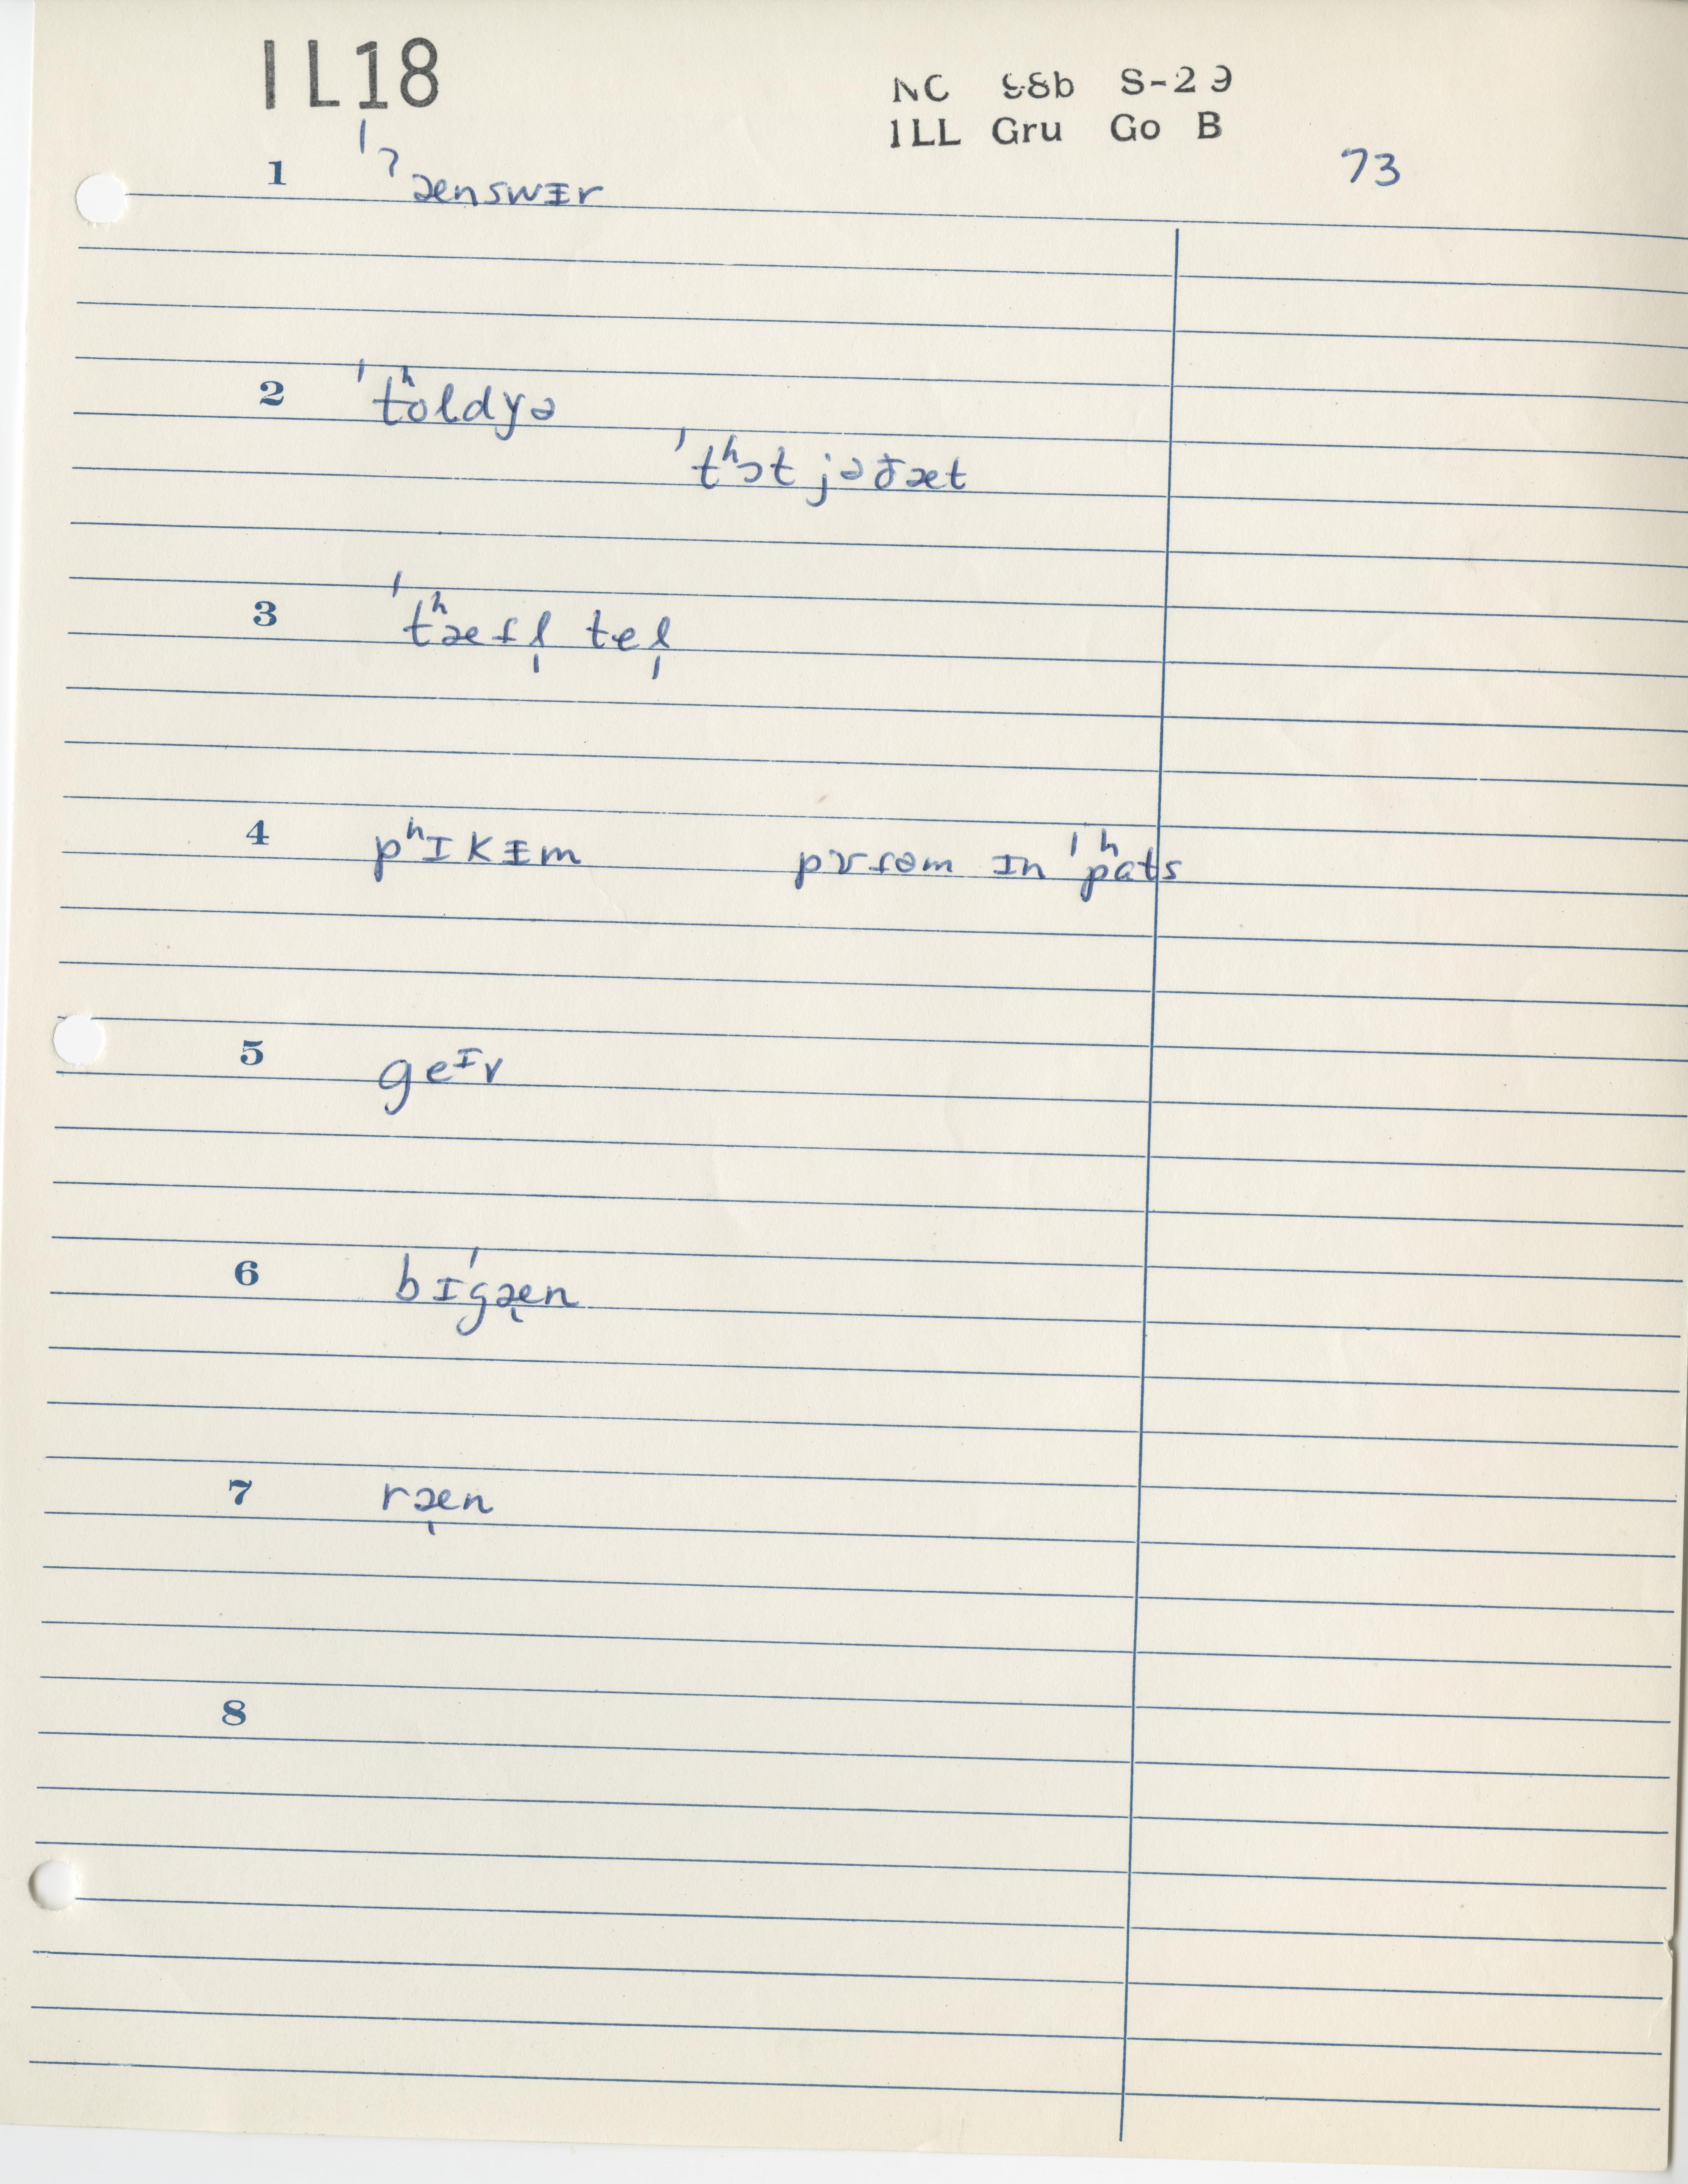 IL18
NC 88b S-29
ILL Gru Go B
73
1 ˈˀænswɪ̵r
2 ˈtʰoldyə
ˈtʰɔt jəðæt
3 ˈtʰæfl̩ tel̩
4 pʰɪkɪ̵m
ɪn ˈpʰɑts
5 geᶦv
6 bɪˈgæ̩n
7 ræ̩n
8